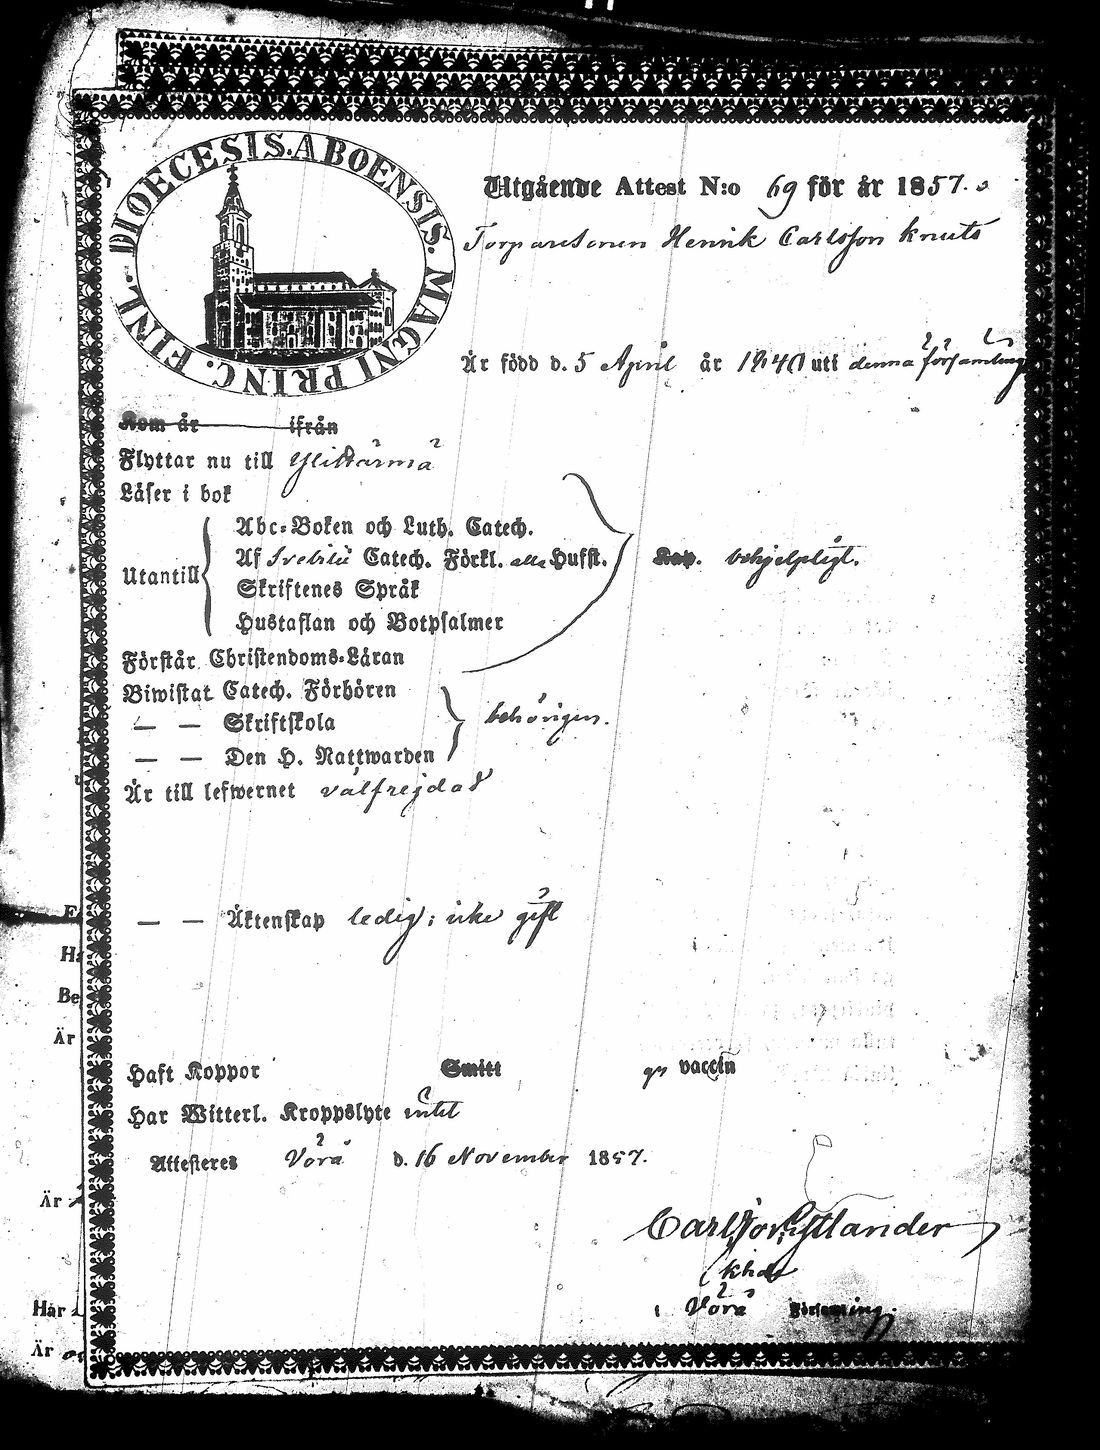 DIOECESIS ABOENSIS. MAGNI PRINC. FINL.
Utgående Attest N:o 69 för år 1857.
Torparesonen Henrik Carlsson Knuts
Är född d. 5 April år 1840 uti denna församling
Kom år ifrån
Flyttar nu till Ylihärmä
Läser i bok
Abc-Boken och Luth. Catech.
Utantill Af Svebilii Catech. Förkl. alla Hufst. Kap. behjelpligt.
Skriftenes Språk
Hustaflan och Botpsalmer
Förstår Christendoms-Läran
Biwistat Catech. Förhören
— — Skriftskola behörigen.
— — Den H. Nattwarden
Är till lefwernet välfrejdad
— — Äktenskap ledig; icke gift
Haft Koppor Smitt vaccin
Har Witterl. Kroppslyte intet
Attesteres Vörå d. 16 November 1857.
Carl
khde
i Vörå Församling.
Hä
Be
Är
Är
Har
Är